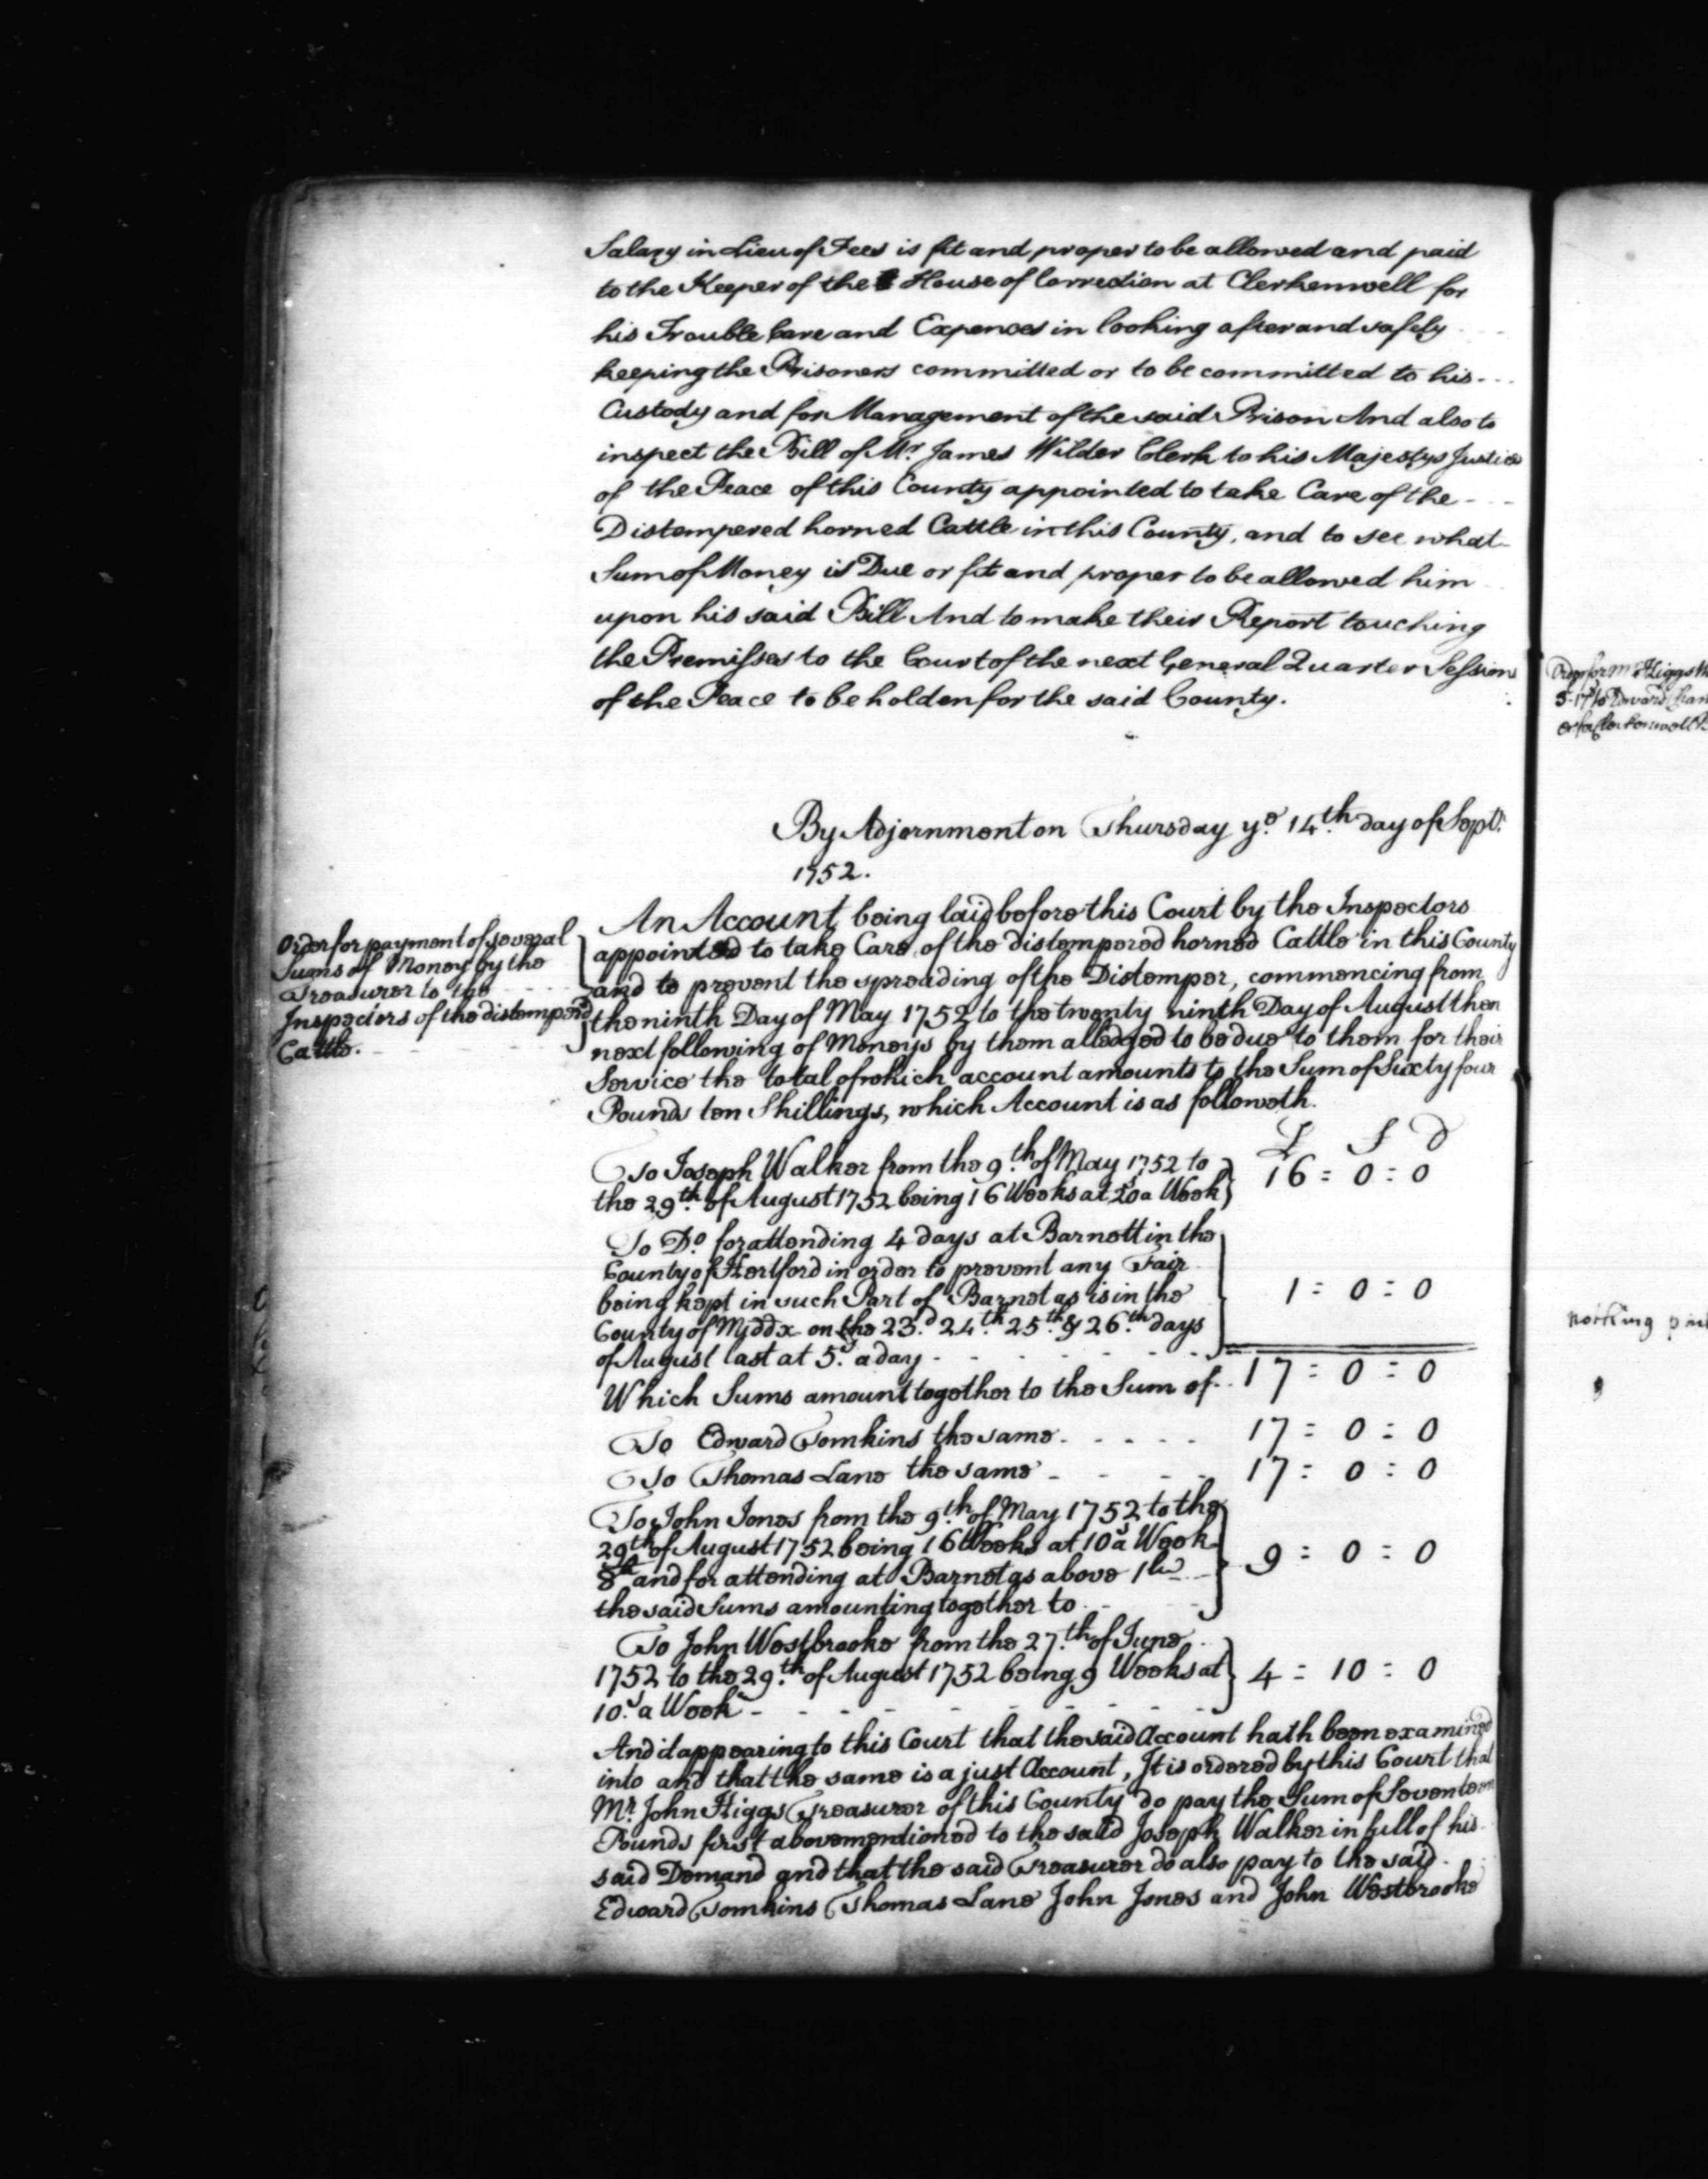 Salary in Lieu of Fees is fit and proper to be allowed and paid
to the Keeper of the House of Correction at Clerkenwell for
his Trouble Care and Expences in looking after and safely
keeping the Prisoners committed or to be committed to his
Custody and for Management of the said Prison And also to
inspect the Bill of Mr. James Wilder Clerk to his Majestys Justices
of the Peace of this County appointed to take Care of the
Distempered horned Cattle in this County, and to see what
Sum of Money is Due or fit and proper to be allowed him
upon his said Bill And to make their Report touching
the Premisses to the Court of the next General Quarter Session
of the Peace to be holden for the said County.
By Adjornment on Thursday ye. 14th. day of Sept.
1752.
Order for payment of several
Sums of Money by the
Treasurer to the
Inspectors of the distempered
Cattle.
An Account being laid before this Court by the Inspectors
appointed to take Care of the distempered horned Cattle in this County
and to prevent the spreading of the Distemper, commencing from
the ninth Day of May 1752 to the twenty ninth Day of August then
next following of Moneys by them alledged to be due to them for their
Service the total of which account amounts to the Sum of Sixty four
Pounds ten Shillings, which Account is as followeth.
£ s d
To Joseph Walker from the 9th. of May 1752 to
the 29th. of August 1752 being 16 Weeks at 20s a Week } 16 = 0 = 0
To Do. for attending 4 days at Barnett in the
County of Hertford in order to prevent any Fair
being kept in such Part of Barnet as is in the } 1 = 0 = 0
County of Middx on the 23d. 24th. 25th. & 26th. days
of August last at 5s. a day
Which Sums amount together to the Sum of 17 = 0 = 0
To Edward Tomkins the same 17 = 0 = 0
To Thomas Lane the same 17 = 0 = 0
To John Jones from the 9th. of May 1752 to the
29th of August 1752 being 16 Weeks at 10s a Week
8£ and for attending at Barnet as above 1£ } 9 = 0 = 0
the said Sums amounting together to
To John Westbrooke from the 27th. of June
1752 to the 29th. of August 1752 being 9 Weeks at } 4 = 10 = 0
10s. a Week
And it appearing to this Court that the said Account hath been examined
into and that the same is a just Account, It is ordered by this Court that
Mr. John Higgs Treasurer of this County do pay the Sum of Seventeen
Pounds first abovementioned to the said Joseph Walker in full of his
said Demand and that the said Treasurer do also pay to the said
Edward Tomkins Thomas Lane John Jones and John Westbrooke
Order for Mr Higgs
nothing